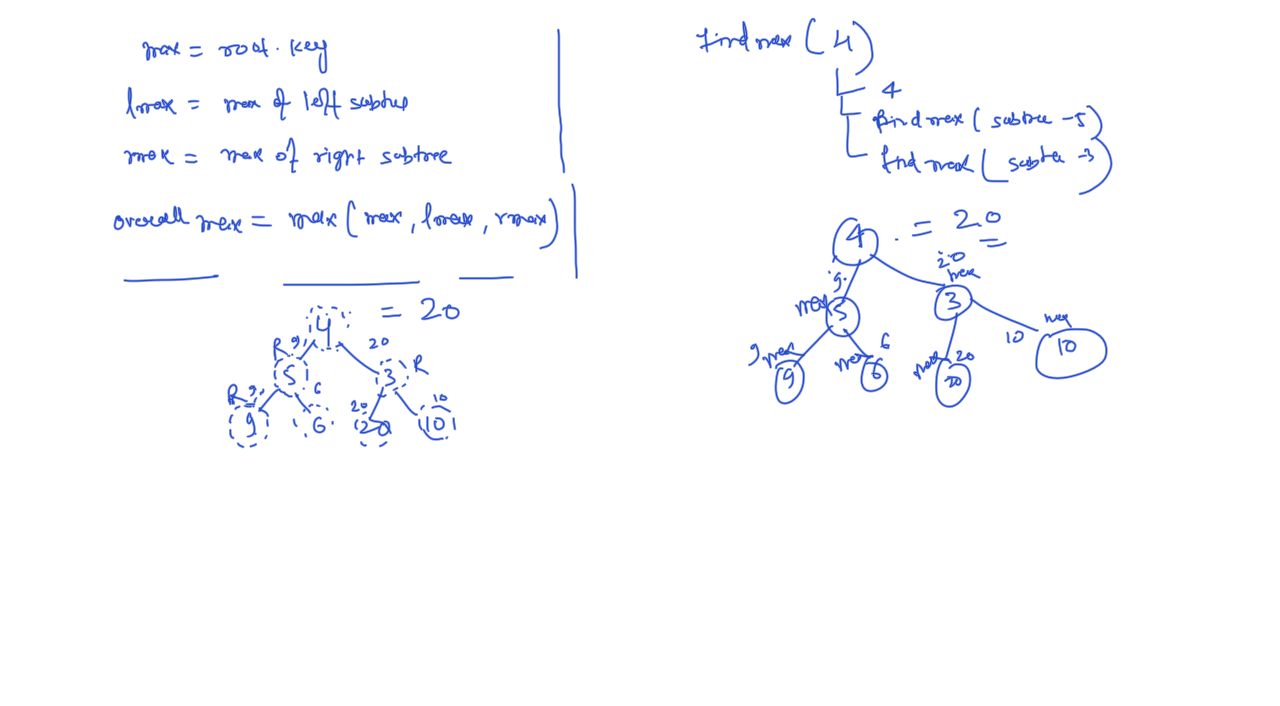 max = root.key
lmax = max of left subtree
rmax = max of right subtree
overall max = max(max, lmax, rmax)
4 = 20
R 9 20
5 3 R
R 9 6 20 10
9 6 20 10
findmax(4)
4
findmax(subtree -5)
findmax(subtree -3)
4 = 20
9 20
max 5 max 3
9 max max 6 max 20 10 max
9 6 20 10